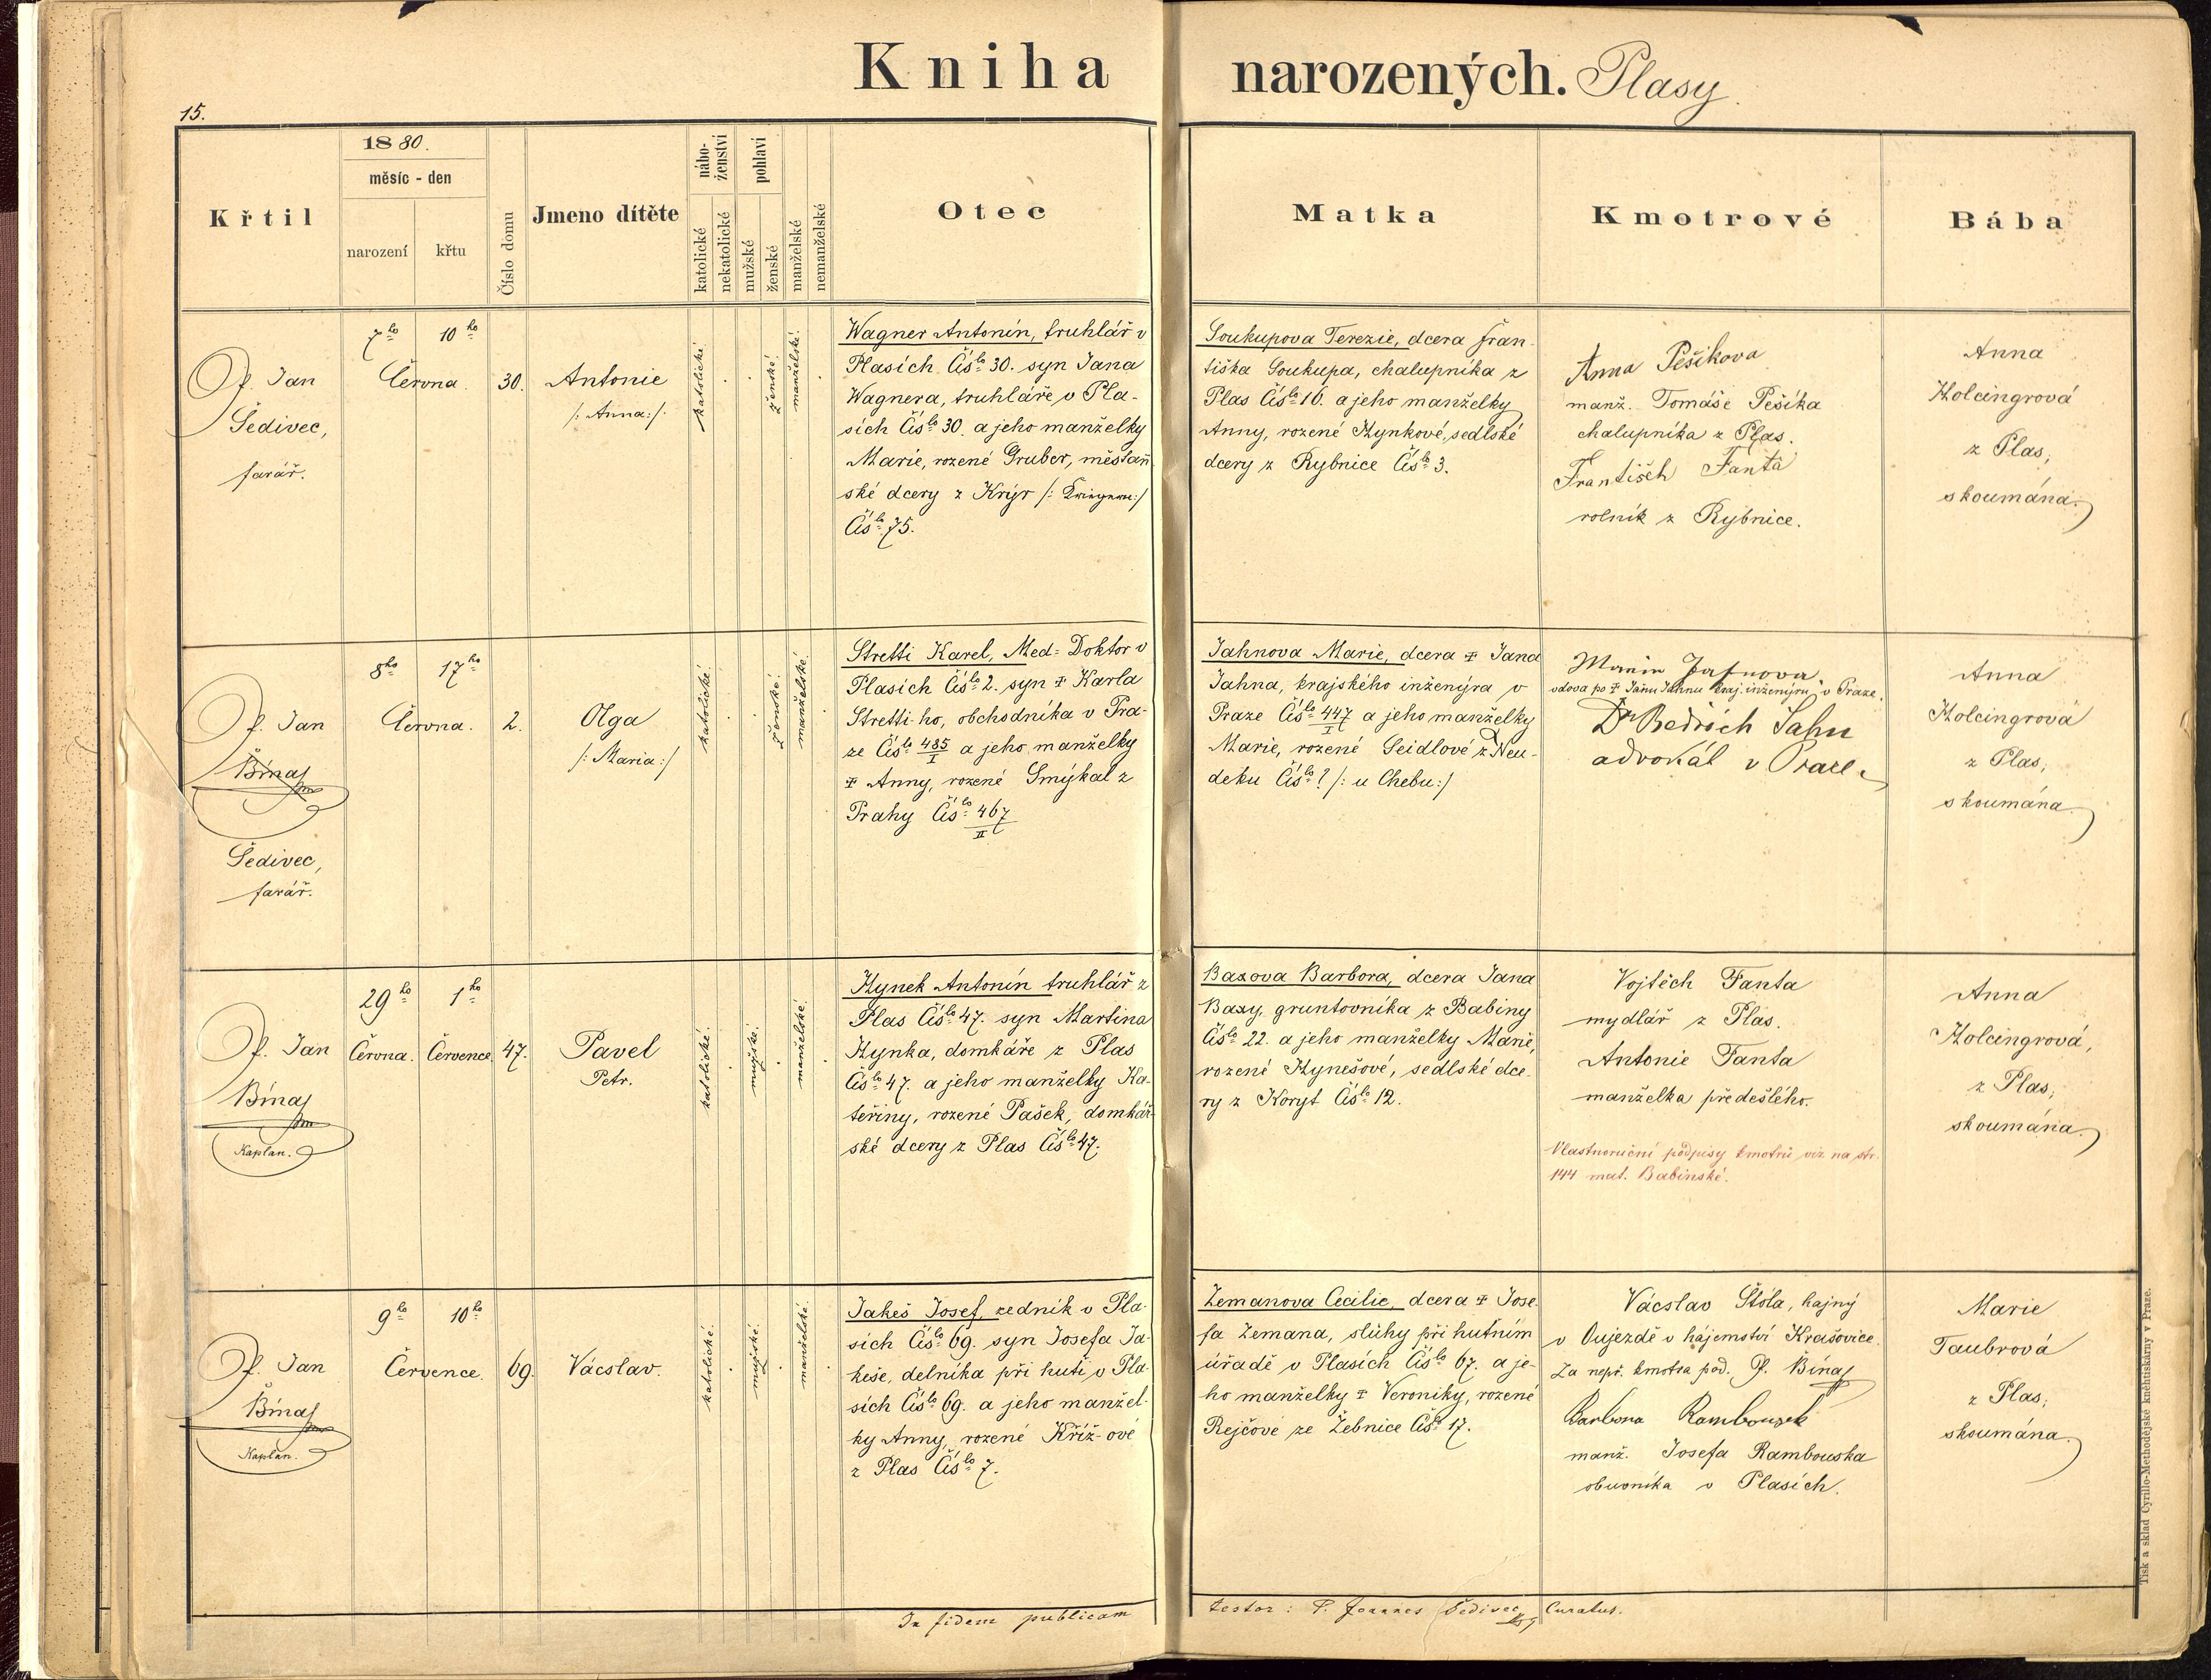 Kniha narozených. Plasy
15.
Křtil
1880.
měsíc - den
narození
křtu
Číslo domu
Jmeno dítěte
nábo-
ženství
katolické
nekatolické
pohlaví
mužské
ženské
manželské
nemanželské
Otec
Matka
Kmotrové
Bába
P. Jan
Šedivec,
farář.
7ho
10ho
Června.
30.
Antonie
/: Anna :/
katolické
ženské
manželské
Wagner Antonín, truhlář v
Plasích Čislo 30. syn Jana
Wagnera, truhláře v Pla-
sích Čislo 30. a jeho manželky
Marie, rozené Gruber, měšťan-
ské dcery z Krýr /: Kriegern :/
Čislo 75.
Soukupova Terezie, dcera Fran-
tiška Soukupa, chalupníka z
Plas Čislo 16. a jeho manželky
Anny, rozené Hynkové, sedlské
dcery z Rybnice Čislo 3.
Anna Pešikova
manž. Tomáše Pešíka
chalupníka z Plas.
František Fanta
rolník z Rybnice.
Anna
Holcingrová
z Plas,
skoumána.
P. Jan
Bínas
Šedivec,
farář.
8ho
17ho
Června.
2.
Olga
/: Maria :/
katolické
ženské
manželské
Stretti Karel, Med= Doktor v
Plasích Čislo 2. syn ‡ Karla
Stretti-ho, obchodníka v Pra-
ze Čislo 485/I a jeho manželky
‡ Anny, rozené Smýkal z
Prahy Čislo 467/II
Jahnova Marie, dcera ‡ Jana
Jahna, krajského inženýra v
Praze Čislo 447/I a jeho manželky
Marie, rozené Seidlové z Neu-
deku Čislo ? /: u Chebu :/
Marie Jahnova
vdova po ‡ Janu Jahnu kraj. inženýru v Praze.
Dr Bedřich Jahn
advokát v Praze
Anna
Holcingrová
z Plas,
skoumána.
P. Jan
Bínas
Kaplan.
29ho
1ho
Června.
Července.
47.
Pavel
Petr.
katolické
mužské
manželské
Hynek Antonín truhlář z
Plas Čislo 47. syn Martina
Hynka, domkáře z Plas
Čislo 47. a jeho manželky Ka-
teřiny, rozené Pašek, domkář-
ské dcery z Plas Čislo 47.
Baxova Barbora, dcera Jana
Baxy, gruntovníka z Babiny
Čislo 22. a jeho manželky Marie,
rozené Hynešové, sedlské dce-
ry z Koryt Čislo 12.
Vojtěch Fanta
mydlář z Plas.
Antonie Fanta
manželka předešlého.
Vlastnoruční podpisy kmotrů viz na str.
144 mat. Babinské.
Anna
Holcingrová,
z Plas,
skoumána.
P. Jan
Bínas
Kaplan.
9ho
10ho
Července.
69.
Vácslav.
katolické
mužské
manželské
Jakeš Josef, zedník v Pla-
sích Čislo 69. syn Josefa Ja-
keše, delníka při huti v Pla-
sích Čislo 69. a jeho manžel-
ky Anny, rozené Kříž-ové
z Plas Čislo 7.
Zemanova Cecilie, dcera ‡ Jose-
fa Zemana, sluhy při hutním
úřadě v Plasích Čislo 67. a je-
ho manželky ‡ Veroniky, rozené
Rejčové ze Žebnice Čislo 17.
Vácslav Štola, hajný
v Oujezdě v hájemství Krašovice.
Za nepř. kmotra pod. P. Bínas
Barbora Rambousek
manž. Josefa Rambouska
obuvníka v Plasích.
Marie
Taubrová
z Plas,
skoumána.
In fidem publicam testor: P. Joannes Šedivec, Curatus.
Tisk a sklad Cyrillo-Methodějské kněhtiskárny v Praze.